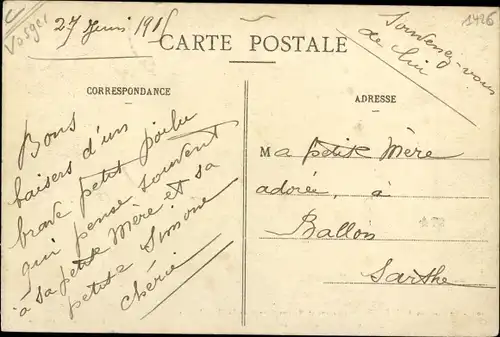 Vosges
27 Juin 1916
1426
Souvenez-vous
de lui
CARTE POSTALE
CORRESPONDANCE
Bons
baisers d'un
brave petit poilu
qui pense souvent
à sa petite Mère et sa
petite Simone
chérie
ADRESSE
Ma petite Mère
adorée, à
Ballon
Sarthe